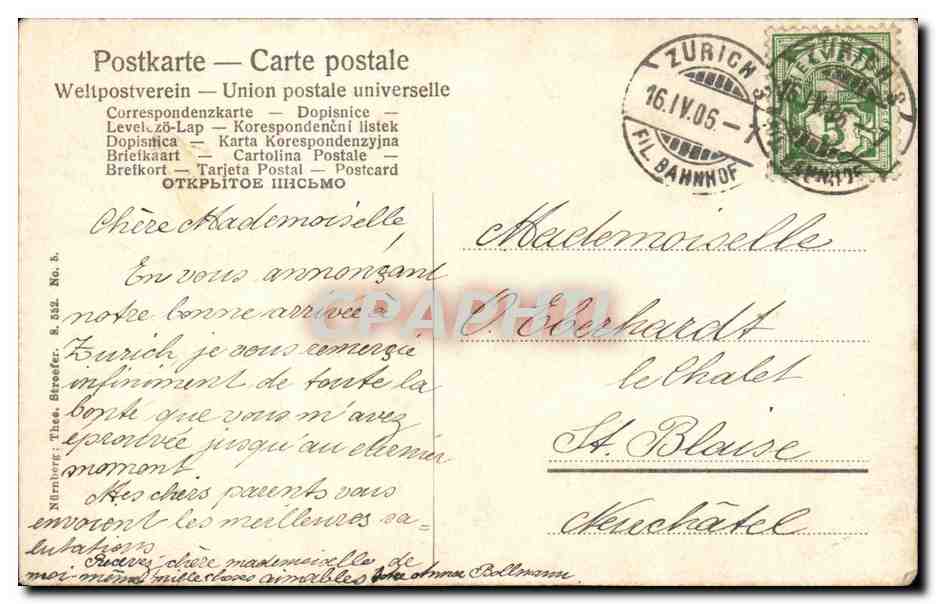 Postkarte — Carte postale
Weltpostverein — Union postale universelle
Correspondenzkarte — Dopisnice —
Levelező-Lap — Korespondenční listek
Dopisnica — Karta Korespondenzyjna
Briefkaart — Cartolina Postale —
Brefkort — Tarjeta Postal — Postcard
ОТКРЫТОЕ ПИСЬМО
ZÜRICH
16.IV.06.–7
FIL. BAHNHOF
5
Chère Mademoiselle,
En vous annonçant
notre bonne arrivée à
Zurich, je vous remerçie
infiniment de toute la
bonté que vous m'avez
éprouvée jusqu'au dernier
momont
Mes chers parents vous
envoient les meilleures sa=
lutations
Recevez chère mademoiselle de
moi-même mille choses aimables votre Anna Bollmann
Mademoiselle
O. Eberhardt
le Chalet
St. Blaise
Neuchâtel
Nürnberg: Theo. Stroefer. S. 552. No. 5.
CPAPHIL